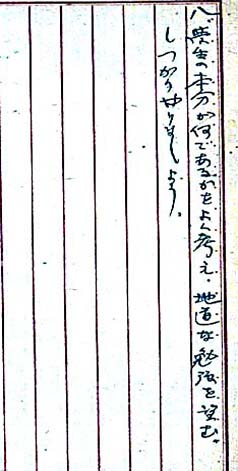 八、学生の本分が何であるかをよく考え、地道な勉強を望む。
しっかりやりましょう。